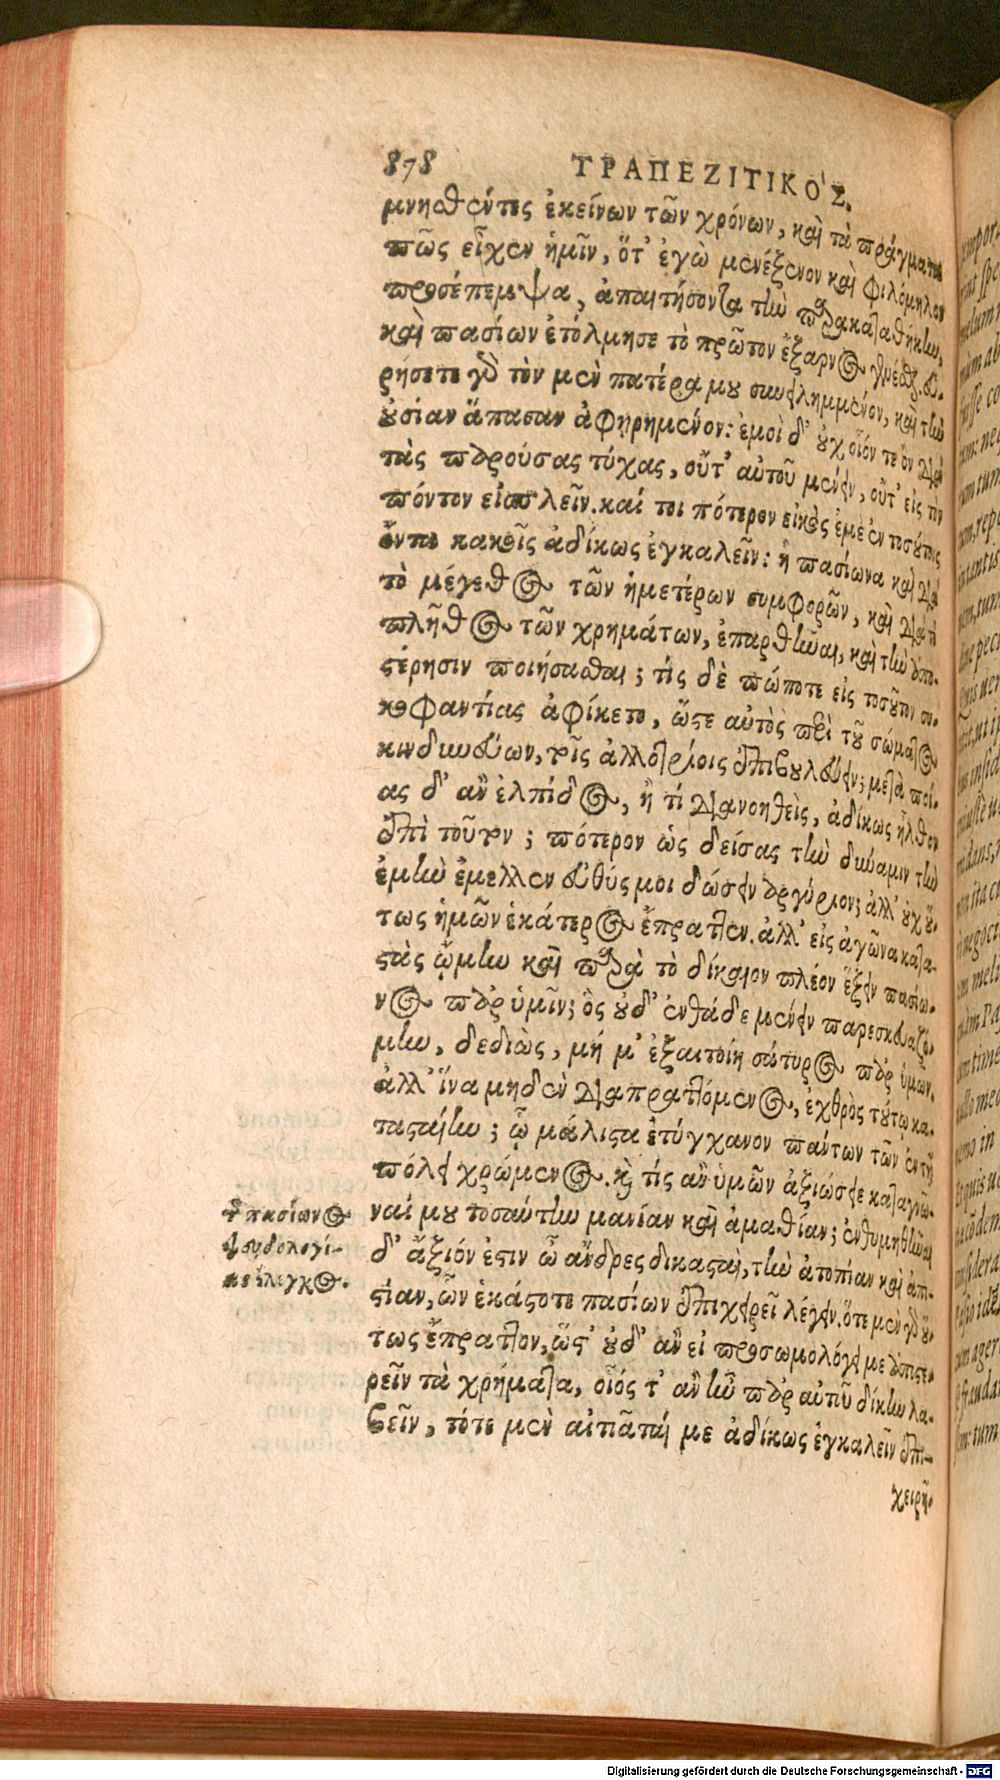 878 ΤΡΑΠΕΖΙΤΙΚΟ'Σ.
μνησθέντες ἐκείνων τῶν χρόνων, καὶ τὰ πράγματα
πῶς εἶχεν ἡμῖν, ὅτ' ἐγὼ μενέξενον καὶ φιλόμηλον
προσέπεμψα, ἀπαιτήσοντα τὴν παρακαταθήκην,
καὶ πασίων ἐτόλμησε τὸ πρῶτον ἔξαρνος γενέσθαι. εὑ-
ρήσετε γὰρ τὸν μὲν πατέρα μου συνειλημμένον, καὶ τὴν
οὐσίαν ἅπασαν ἀφῃρημένον: ἐμοὶ δ' οὐχ οἷόν τε ὂν διὰ
τὰς παρούσας τύχας, οὔτ' αὐτοῦ μένειν, οὔτ' εἰς τὸν
πόντον εἰσπλεῖν. καί τοι πότερον εἰκὸς ἐμὲ ἐν τοσούτοις
ὄντα κακοῖς ἀδίκως ἐγκαλεῖν: ἢ πασίωνα καὶ διὰ
τὸ μέγεθος τῶν ἡμετέρων συμφορῶν, καὶ διὰ τὸ
πλῆθος τῶν χρημάτων, ἐπαρθῆναι, καὶ τὴν ἀπο-
στέρησιν ποιήσασθαι; τίς δὲ πώποτε εἰς τοσοῦτον συ-
κοφαντίας ἀφίκετο, ὥστε αὐτὸς περὶ τοῦ σώματος
κινδυνεύων, τοῖς ἀλλοτρίοις ἐπιβουλεύειν; μετὰ ποί-
ας δ' ἂν ἐλπίδος, ἢ τί διανοηθεὶς, ἀδίκως ἦλθον
ἐπὶ τοῦτον; πότερον ὡς δείσας τὴν δύναμιν τὴν
ἐμὴν ἔμελλεν εὐθύς μοι δώσειν ἀργύριον; ἀλλ' οὐχ οὕ-
τως ἡμῶν ἑκάτερος ἔπραττεν. ἀλλ' εἰς ἀγῶνα κατα-
στὰς ᾤμην καὶ παρὰ τὸ δίκαιον πλέον ἕξειν πασίω-
νος παρ' ὑμῖν; ὃς οὐδ' ἐνθάδε μένειν παρεσκευαζό-
μην, δεδιὼς, μή μ' ἐξαιτοίη σάτυρος παρ' ὑμῶν.
ἀλλ' ἵνα μηδὲν διαπραττόμενος, ἐχθρὸς τούτῳ κα-
τασταίην; ᾧ μάλιστα ἐτύγχανον πάντων τῶν ἐν τῇ
πόλει χρώμενος. καὶ τίς ἂν ὑμῶν ἀξιώσειε καταγνῶ-
ναί μου τοσαύτην μανίαν καὶ ἀμαθίαν; ἐνθυμηθῆναι
δ' ἄξιόν ἐστιν ὦ ἄνδρες δικασταὶ, τὴν ἀτοπίαν καὶ ἀπι-
στίαν, ὧν ἑκάστοτε πασίων ἐπιχειρεῖ λέγειν. ὅτε μὲν γὰρ οὕ-
τως ἔπραττον, ὥστ' οὐδ' ἂν εἰ προσωμολόγει με ἀποστε-
ρεῖν τὰ χρήματα, οἷός τ' ἂν ἦν παρ' αὐτοῦ δίκην λα-
βεῖν, τότε μὲν αἰτιᾶταί με ἀδίκως ἐγκαλεῖν ἐπι-
χειρῆ-
τῆς πασίωνος
ψευδολογί-
ας ἔλεγχος.